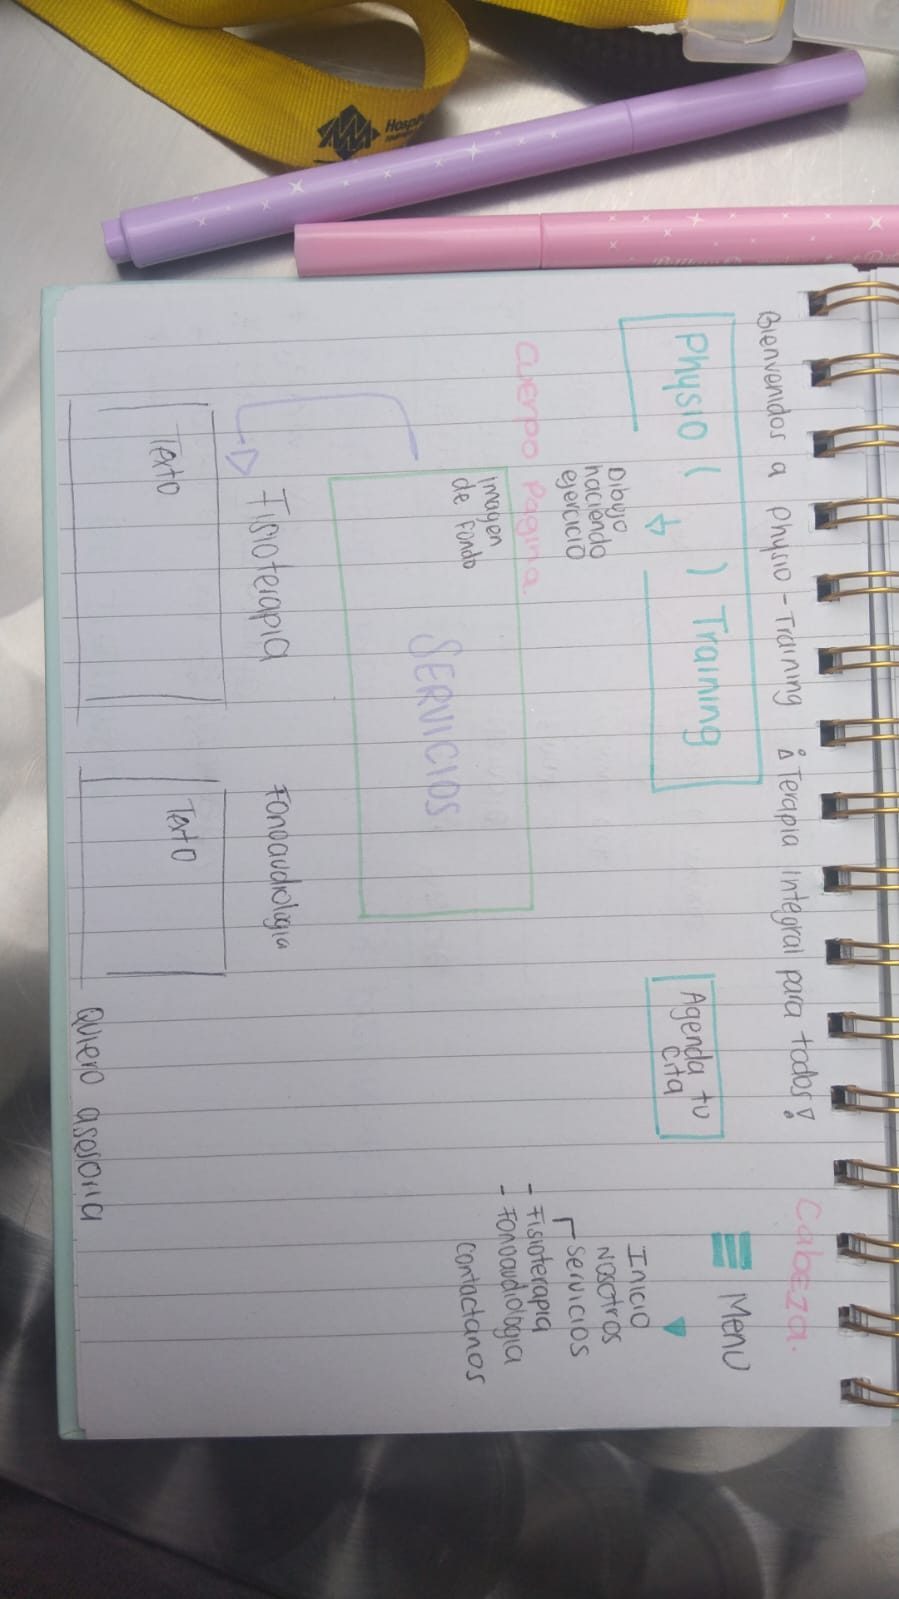 Bienvenidos a Physio - Training ¡Terapia Integral para todos!
Cabeza.
Physio ( ) Training
Agenda tu
cita
Menu
Dibujo
haciendo
ejercicio
Inicio
Nosotros
Servicios
- Fisioterapia
- Fonoaudiologia
Contactanos
Cuerpo Pagina
Imagen
de Fondo
SERVICIOS
Fisioterapia
Fonoaudiologia
Texto
Texto
Quiero asesoria